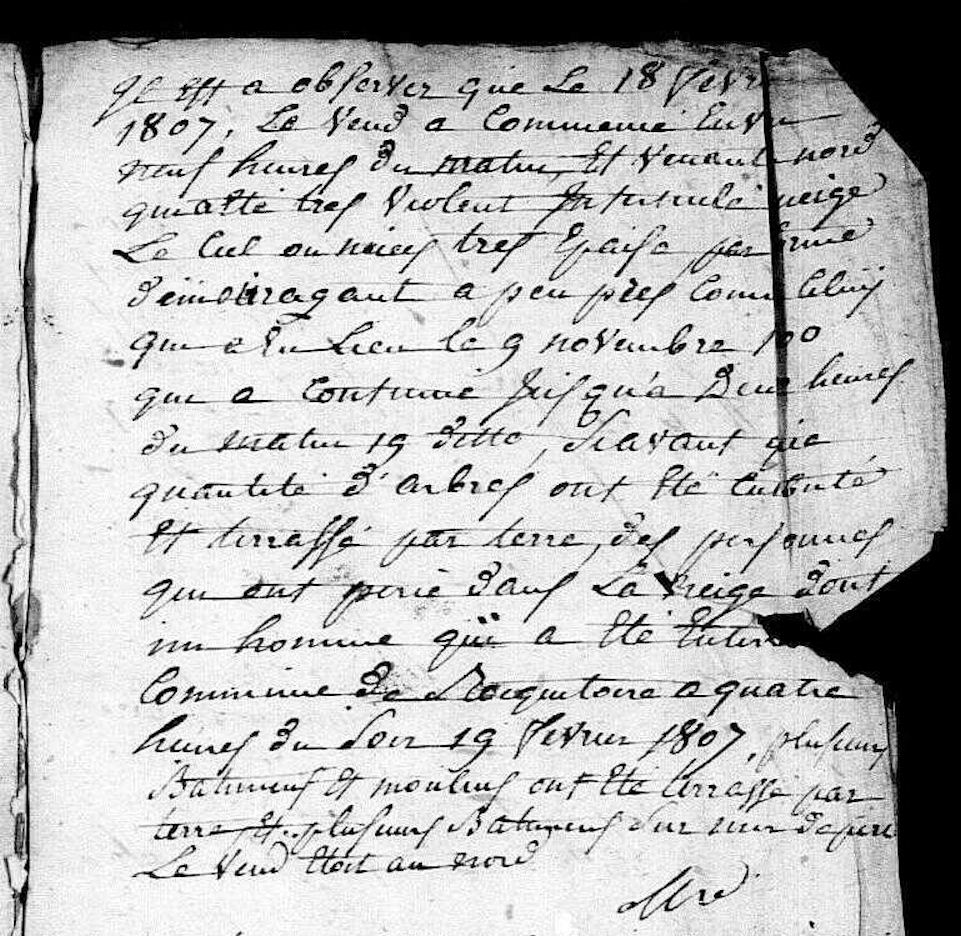 Il Est a observer que Le 18 fevr
1807, Le Vend a Commencé Envi
neuf heures du matin, Et venant nord
qui a tté tres Violent
neige
Le Ciel ou nuées tres Epaise, par
a peu pres Comme Celuis
que a Eu Lieu le 9 novembre 1 00
que a Continué Jusqu'a Deux heures
du matin 19 ditto, Scavant que
quantité d'arbres ont Eté Culbuté
Et terrassé par terre, des personnes
qui ont perie dans La neige dont
un homme qui a Eté Enterré
Commune de Rocquetoire a quatre
heures du Soir 19 fevrier 1807, plusieurs
Batimens Et moulins ont Eté terrassé par
terre, Et plusieurs Batimens Sur mer de peri
Le Vend Etoit au Nord